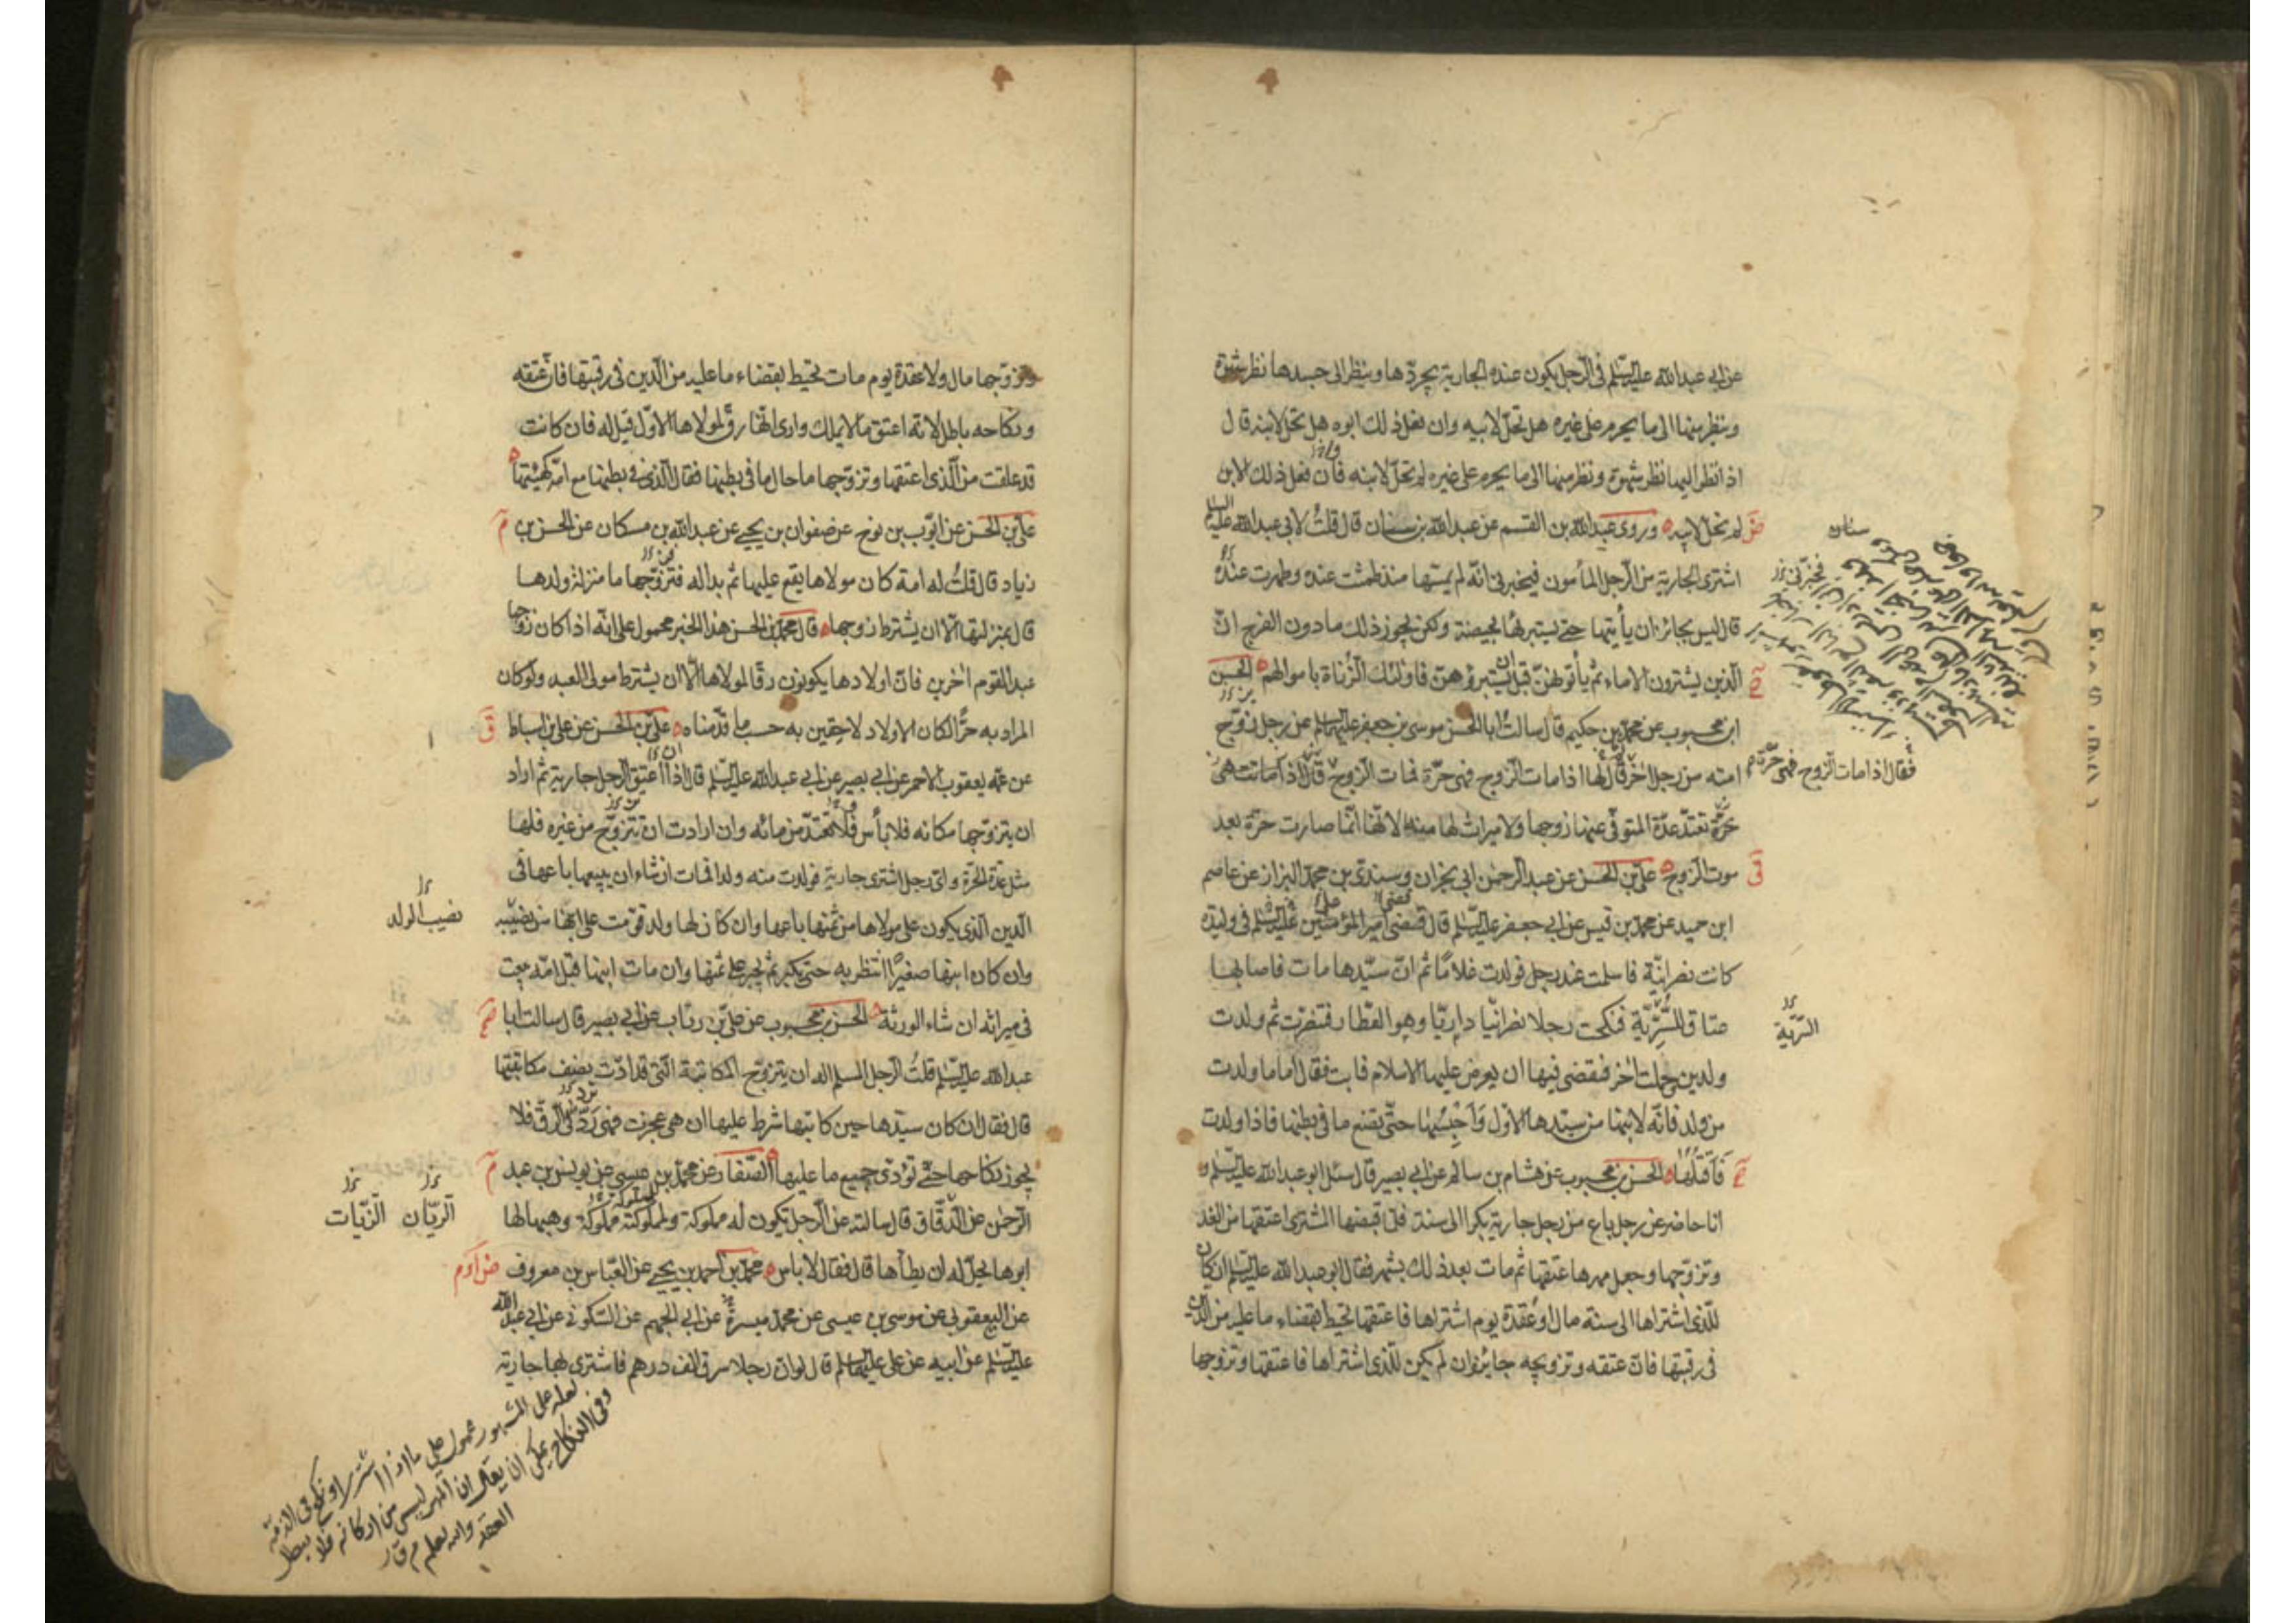 عن ابي عبدالله عليه السلم في الرجل يكون عنده الجارية يجردها وينظر الى جسدها نظر شهوة
وينظر منها الى ما يحرم على غيره هل تحل لابيه وان فعل ذلك ابوه هل تحل لابنه قال
اذا نظر اليها نظر شهوة ونظر منها الى ما يحرم على غيره لم تحل لابنه فان فعل ذلك الابن
لم تحل لابيه وروى عبدالله بن القسم عن عبدالله بن سنان قال قلت لابي عبدالله عليه السلم
اشترى الجارية من الرجل المأمون فيخبرني انه لم يمسها منذ طمثت عنده وطهرت عنده
قال ليس بجائز ان يأتيها حتى يستبرئها بحيضة ولكن يجوز ذلك ما دون الفرج ان
الذين يشترون الاماء ثم يأتوهن قبل ان يستبرؤهن فاولئك الزناة باموالهم الحسن
ابن محبوب عن محمد بن حكيم قال سالت ابا الحسن موسى بن جعفر عليهما السلم عن رجل زوج
امته من رجل اخر قال لها اذا مات الزوج فهي حرة فمات الزوج قال اذا مات هي
حرة تعتد عدة المتوفى عنها زوجها ولا ميراث لها منه لانها انما صارت حرة بعد
موت الزوج علي بن الحسن عن عبدالرحمن ابي نجران وسندي بن محمد البزاز عن عاصم
ابن حميد عن محمد بن قيس عن ابي جعفر عليه السلم قال قضى امير المؤمنين عليه السلم في وليدة
كانت نصرانية فاسلمت عند رجل فولدت غلاما ثم ان سيدها مات فاصابها
عتاق السرية فنكحت رجلا نصرانيا داريا وهو العطار فتنصرت ثم ولدت
ولدين وحملت اخر فقضى فيها ان يعرض عليها الاسلام فابت فقال اما ما ولدت
من ولد فانه لابنها من سيدها الاول واحبسها حتى تضع ما في بطنها فاذا ولدت
فاقتلها الحسن بن محبوب عن هشام بن سالم عن ابي بصير قال سئل ابو عبدالله عليه السلم و
انا حاضر عن رجل باع من رجل جارية بكرا الى سنة فلما قبضها المشترى اعتقها من الغد
وتزوجها وجعل مهرها عتقها ثم مات بعد ذلك بشهر فقال ابو عبدالله عليه السلم ان كان
للذى اشتراها الى سنة مال او عقدة يوم اشتراها فاعتقها تحيط بقضاء ما عليه من الدين
في رقبتها فان عتقه وتزويجه جايز وان لم يكن للذى اشتراها فاعتقها وتزوجها
فقال اذا مات الزوج فهي حرة
السرية
وتزوجها مال ولا عقدة يوم مات تحيط بقضاء ما عليه من الدين في رقبتها فان عتقه
ونكاحه باطل لانه اعتق ما لا يملك وارى انها رق لمولاها الاول قيل له فان كانت
قد علقت من الذى اعتقها وتزوجها ما حال ما في بطنها فقال الذى في بطنها مع امه كهيئتها
علي بن الحسن عن ايوب بن نوح عن صفوان بن يحيى عن عبدالله بن مسكان عن الحسن بن
زياد قال قلت له امة كان مولاها يقع عليها ثم بدا له فتزوجها ما منزلة ولدها
قال بمنزلتها الا ان يشترط زوجها قال محمد بن الحسن هذا الخبر محمول على انه اذا كان زوجها
عبد القوم اخرين فان اولادها يكونون رقا لمولاها الا ان يشترط مولى العبد ولو كان
المراد به حرا لكان الاولاد لاحقين به حسب ما قدمناه علي بن الحسن عن علي بن اسباط
عن عمه يعقوب الاحمر عن ابي بصير عن ابي عبدالله عليه السلم قال اذا اعتق الرجل جاريته ثم اراد
ان يتزوجها مكانه فلا بأس فلا تعتد من مائه وان ارادت ان تتزوج من غيره فلها
مثل عدة الحرة واى رجل اشترى جارية فولدت منه ولدا فمات ان شاء ان يبيعها باعها في
الدين الذى يكون على مولاها من ثمنها باعها وان كان لها ولد قومت على ابنها من نصيبه
وان كان ابنها صغيرا انتظر به حتى يكبر ثم يجبر على ثمنها وان مات ابنها قبل امه بيعت
في ميراثه ان شاء الورثة الحسن بن محبوب عن علي بن رئاب عن ابي بصير قال سالت ابا
عبدالله عليه السلم قلت الرجل المسلم اله ان يتزوج المكاتبة التى قد ادت نصف مكاتبتها
قال فقال ان كان سيدها حين كاتبها شرط عليها ان هي عجزت فهي رد في الرق فلا
يجوز نكاحها حتى تؤدى جميع ما عليها الصفار عن محمد بن عيسى عن يونس بن عبد
الرحمن عن الدقاق قال سالته عن الرجل يكون له مملوكة ولمملوكته مملوكة وهبها لها
ابوها يحل له ان يطأها قال فقال لا باس محمد بن احمد بن يحيى عن العباس بن معروف
عن اليعقوبي عن موسى بن عيسى عن محمد ميسرة عن ابي الجهم عن السكوني عن ابي عبدالله
عليه السلم عن ابيه عن علي عليهما السلم قال لو ان رجلا سرق الف درهم فاشترى بها جارية
نصيب الولد
الريان الزيات
لعله على المشهور محمول على ما اذا اشترى او نكح في الذمة
وفي النكاح يمكن ان يقال ان المهر ليس من اركانه فلا يبطل
العقد والله يعلم م ق ر